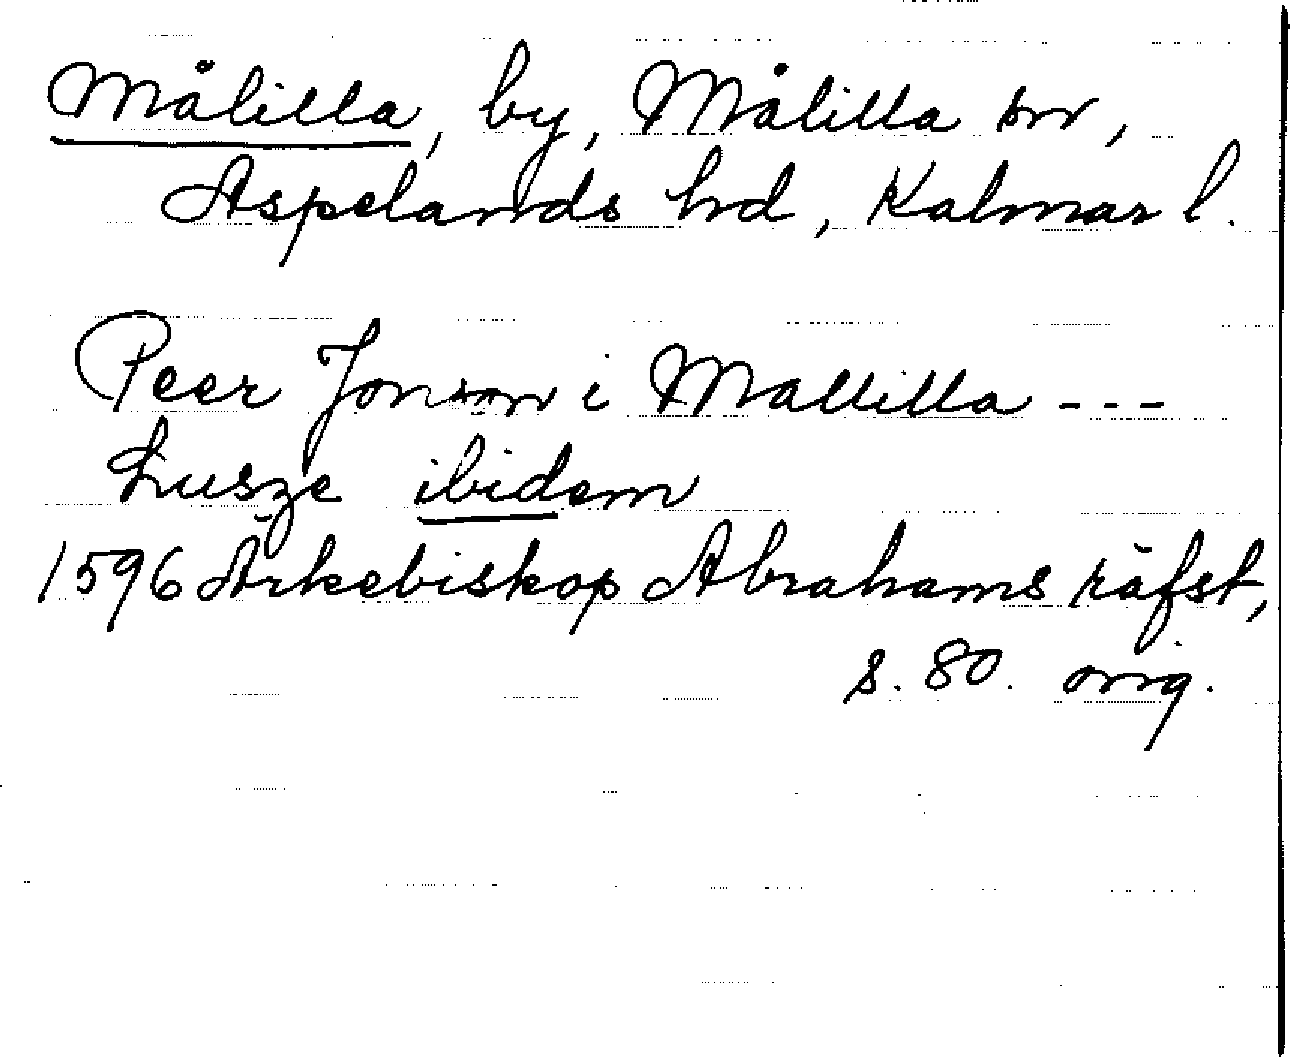 Målilla, by, Målilla sn,
Aspelands hd, Kalmar l.
Peer Jonson i Mallilla ---
husze ibidem
1596 Ärkebiskop Abrahams räfst,
s. 80. orig.